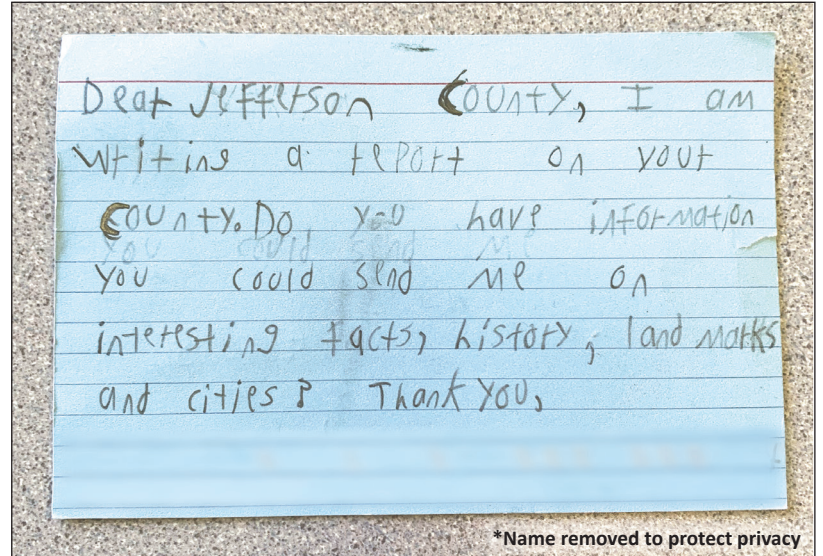 Dear Jefferson County, I am
writing a report on your
County. Do you have information
you could send me on
interesting facts, history, land marks
and cities? Thank you,
*Name removed to protect privacy